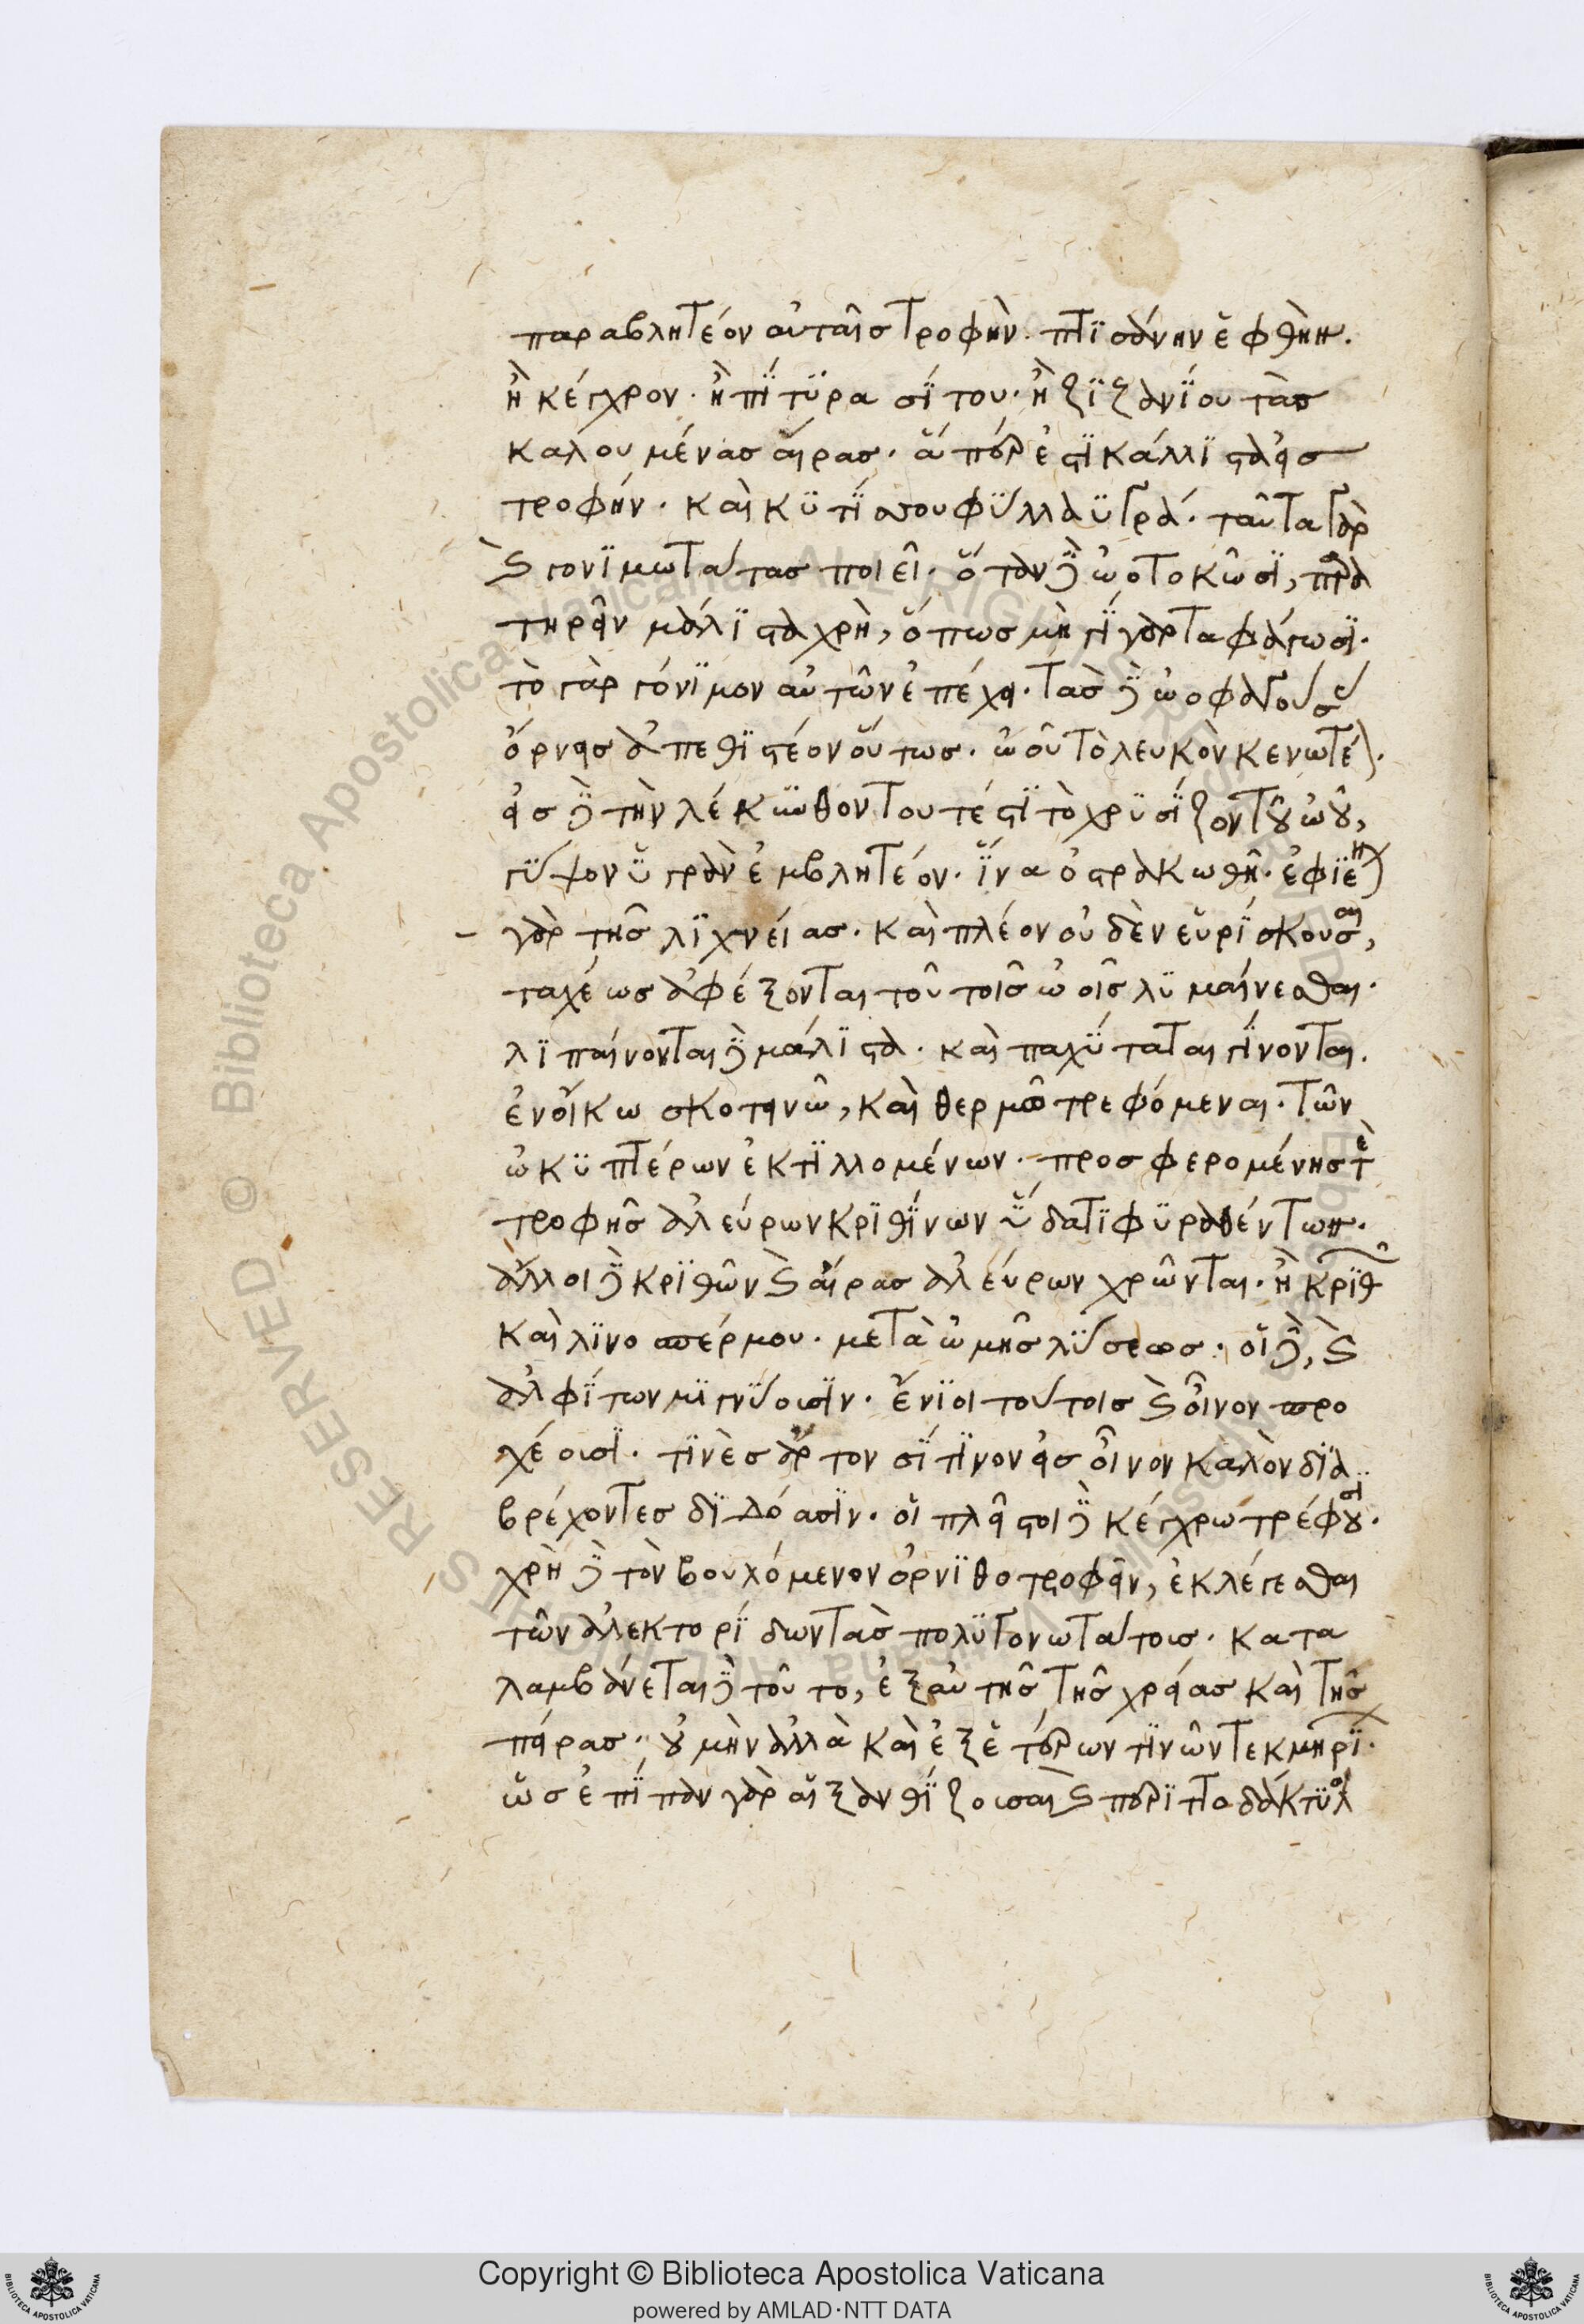 παραβλητέον αὐταῖς τροφὴν. πτισάνην ἑφθὴν.
ἢ κέγχρον. ἢ πίτυρα σίτου. ἢ ζιζανίου τὰς
καλουμένας αἴρας. ἅπερ ἐστὶ κάλλιστα εἰς
τροφήν. καὶ κυτίσου φύλλα ὑγρά. ταῦτα γὰρ
καὶ γονιμωτάτας ποιεῖ. ὅταν δὲ ὠοτοκῶσι, παρα
τηρεῖν μάλιστα χρὴ, ὅπως μὴ γίγαρτα φάγωσι.
τὸ γὰρ γόνιμον αὐτῶν ἐπέχει. τὰς δὲ ὠοφαγούσας
ὄρνεις ἀπεθιστέον οὕτως. ὠοῦ τὸ λευκὸν κενωτέον.
εἰς δὲ τὴν λέκιθον τουτέστι τὸ χρυσίζον τοῦ ὠοῦ,
γύψον ὑγρὰν ἐμβλητέον. ἵνα ὀστρακωθῇ. ἐφιέμεναι
γὰρ τῆς λιχνείας. καὶ πλέον οὐδὲν εὑρίσκουσαι,
ταχέως ἀφέξονται τοῦ τοῖς ὠοῖς λυμαίνεσθαι.
λιπαίνονται δὲ μάλιστα. καὶ παχύταται γίνονται.
ἐν οἴκω σκοτεινῶ, καὶ θερμῶ τρεφόμεναι. τῶν
ὠκυπτέρων ἐκτιλλομένων. προσφερομένης τὲ
τροφῆς ἀλεύρων κριθίνων ὕδατι φυραθέντων.
ἄλλοι δὲ κριθῶν καὶ αἴρας ἀλεύρων χρῶνται. ἢ κριθῶν
καὶ λινοσπέρμου. μετὰ ὠμῆς λύσεως. οἱ δὲ, καὶ
ἀλφίτων μιγνύουσιν. ἔνιοι τούτοις καὶ οἶνον προ
χέουσι. τινὲς ἄρτον σίτινον εἰς οἶνον καλὸν δια
βρέχοντες διδόασιν. οἱ πλεῖστοι δὲ κέγχρω τρέφουσι.
χρὴ δὲ τὸν βουλόμενον ὀρνιθοτροφεῖν, ἐκλέγεσθαι
τῶν ἀλεκτορίδων τὰς πολυγονωτάτοις. κατα
λαμβάνεται δὲ τοῦτο, ἐξ αὐτῆς τῆς χρείας καὶ τῆς
πείρας. οὐ μὴν ἀλλὰ καὶ ἐξ ἑτέρων τινῶν τεκμηρί.
ὡς ἐπίπαν γὰρ αἱ ξανθίζουσαι καὶ περιττοδάκτυλοι